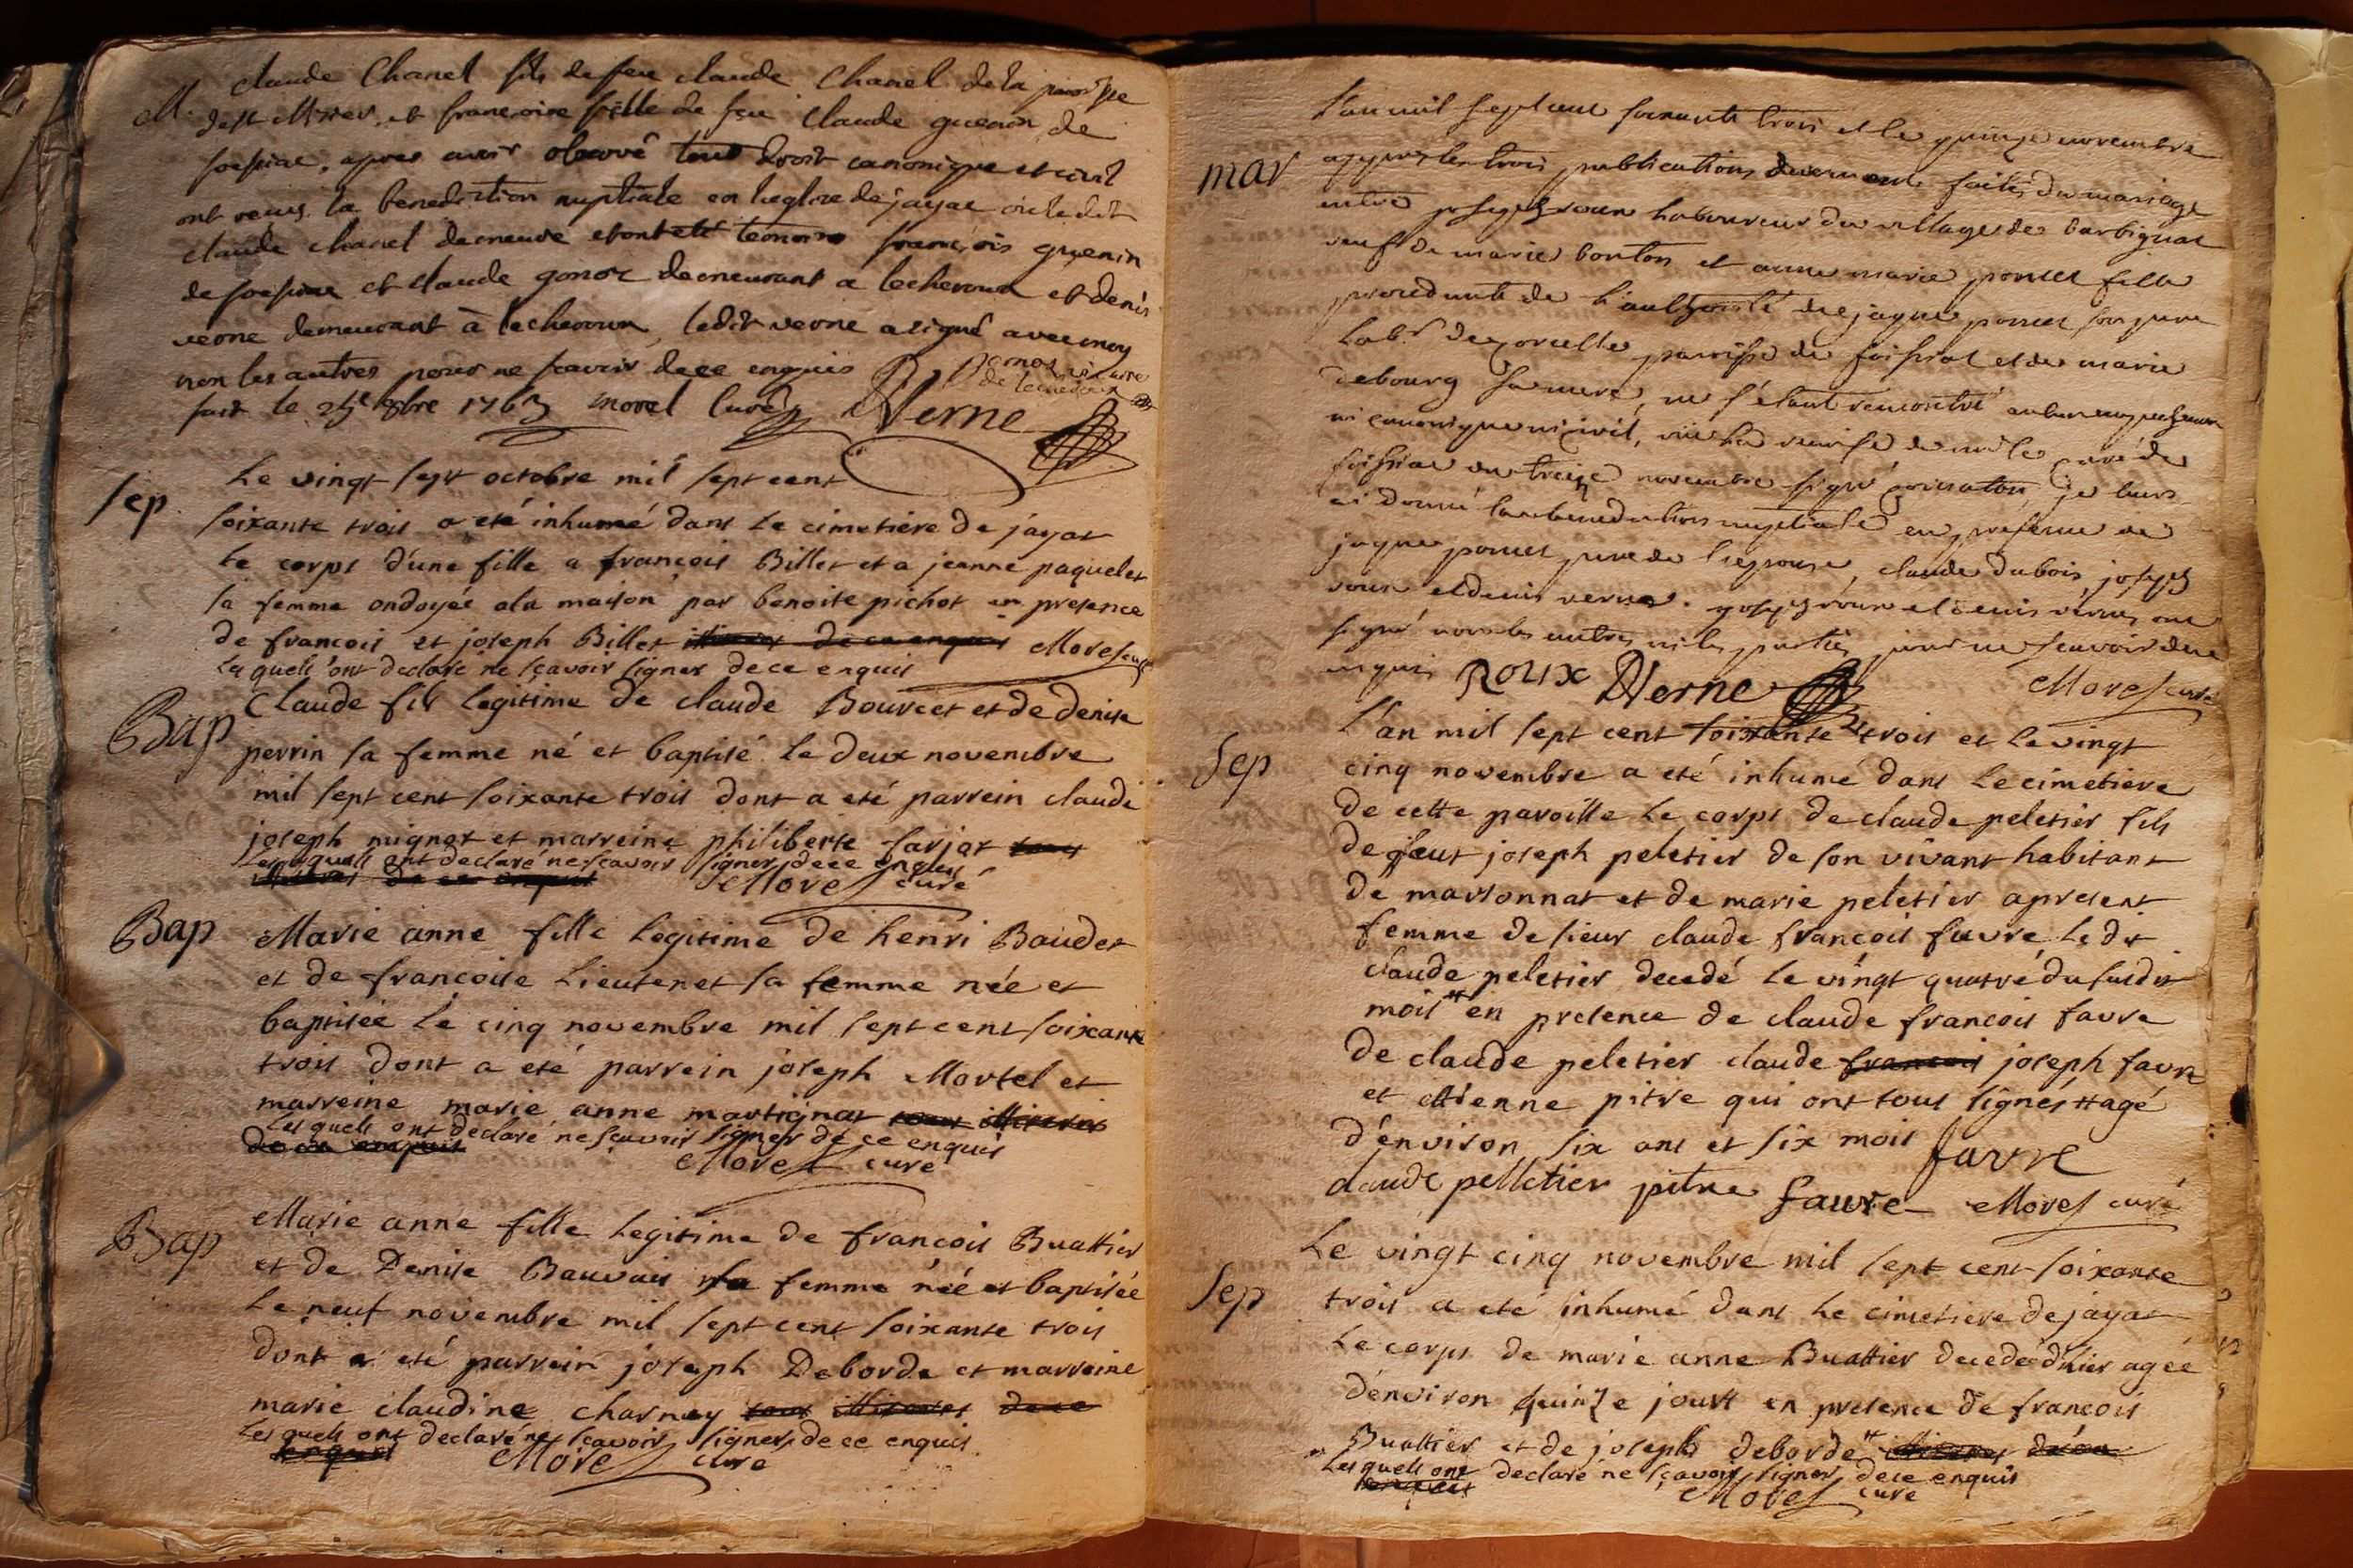 claude Chanel fils de feu claude Chanel de la paroisse
M. de st et francoise fille de feu Claude guenin de
foissiac, apres avoir observé tout droit canonique et civil
ont recus la benediction nuptiale en leglise de jayac ou ledit
claude chanel demeure et ont eté temoins françois guenin
de foissiac et claude gonod demeurant a lecheroux et denis
verne demeurant à lecheroux, ledit verne a signé avec moy
non les autres pour ne scavoir de ce enquis
fait le 8bre 1763 morel Curé DVerne
Le vingt sept octobre mil sept cent
Sep. soixante trois a eté inhumé dans le cimetiere de jayat
le corps d'une fille a françois Billet et a jeanne paquelet
sa femme ondoyée a la maison par benoite pichot en presence
de francois et joseph Billet illiteres de ce enquis Morel curé
Lesquels ont declaré ne sçavoir signer de ce enquis
Bap Claude fils legitime de claude Bourcet et de denise
perrin sa femme né et baptisé le deux novembre
mil sept cent soixante trois dont a eté parrein claude
joseph mignot et marreine philiberte farjot tous
Lesquels ont declaré ne sçavoir signer de ce enquis
illiteres de ce enquis Morel curé
Bap Marie anne fille legitime de henri Baudet
et de francoise Lieutenet sa femme née et
baptisée le cinq novembre mil sept cent soixante
trois dont a eté parrein joseph Mortel et
marreine marie anne martignat tous illiteres
Lesquels ont declaré ne sçavoir signer de ce enquis
de ce enquis Morel curé
Bap Marie anne fille legitime de francois Buattier
et de Denise Bauvais sa femme née et baptisée
le neuf novembre mil sept cent soixante trois
dont a eté parrein joseph Deborde et marreine
marie claudine charnay tous illiteres de ce
Lesquels ont declaré ne sçavoir signer de ce enquis
enquis Morel curé
L'an mil sept cent soixante trois et le quinze novembre
mar appres les trois publications duement faites du mariage
entre joseph roux laboureur du village de barbignat
veuf de marie bonton et anne marie poncet fille
procedante de l'aulthorité de jaque poncet son pere
lab.r de parroisse de foissiat et de marie
debourg sa mere, ne s'étant rencontré aucun empechement
ni canonique ni civil, vüe la remise de mr le curé de
foissiac du treize novembre signé je leurs
ai donné la benediction nuptiale en presence de
jaque poncet pere de l'epouse, claude dubois, joseph
roux et denis verne. joseph roux et denis verne ont
signé non les autres ni les parties pour ne scavoir de ce
enquis Roux DVerne Morel curé
L'an mil sept cent soixante trois et le vingt
Sep cinq novembre a eté inhumé dans le cimetiere
de cette paroisse le corps de claude peletier fils
de feut joseph peletier de son vivant habitant
de marsonnat et de marie peletier apresent
femme de sieur claude françois favre Le dit
claude peletier decedé le vingt quatre du susdit
mois en presence de claude francois favre
de claude peletier claude francois joseph favre
et etienne pitre qui ont tous signés agé
d'environ six ans et six mois favre
claude pelletier pitre favre Morel curé
Le vingt cinq novembre mil sept cent soixante
Sep trois a eté inhumé dans le cimetiere de jayat
Le corps de marie anne Buattier decedée d'hier agée
d'environ quinze jours en presence de francois
Buattier et de joseph deborde illiteres de ce
Lesquels ont declaré ne sçavoir signer de ce enquis
enquis Morel curé